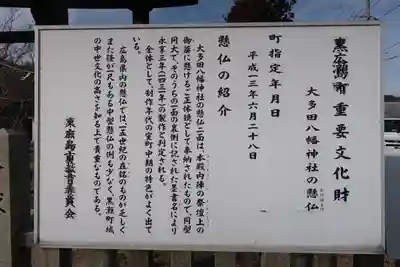 東広島市重要文化財
大多田八幡神社の懸仏
町指定年月日
平成一三年六月二十八日
懸仏の紹介
大多田八幡神社の懸仏二面は、本殿内陣の祭壇上の
御簾に懸けるご正体鏡として奉納されたもので、同型
同大で、そのうちの一面の裏側に記された墨書名により
永享三年(一四三一年)の製作と判定される。
全体として、制作年代の室町中期の特色がよく出て
いる。
広島県内の懸仏では、一五世紀の在銘のものが乏しく
また径が一尺もある中型懸仏の例も少なく、黒瀬町域
の中世文化の高さを知る上で貴重なものである。
東広島市教育委員会